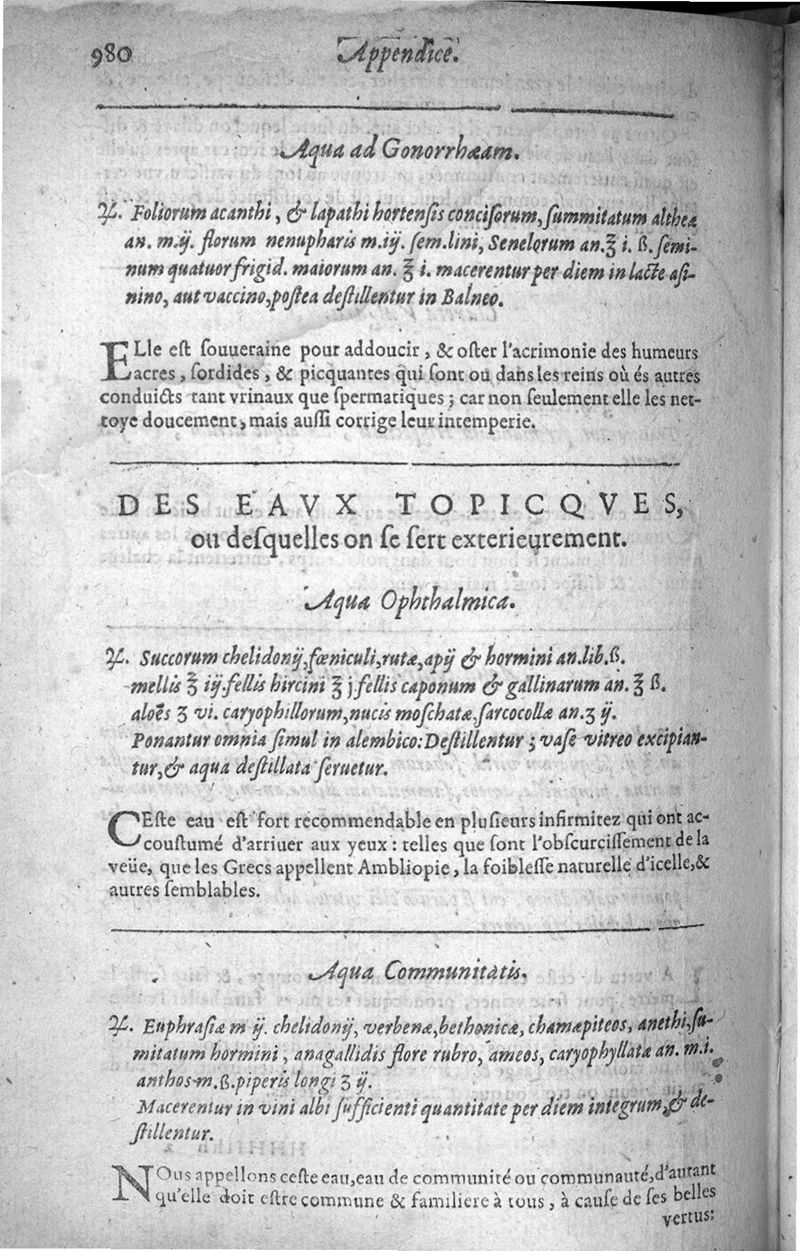 980 Appendice.
Aqua ad Gonorrhæam.
℞. Foliorum acanthi, & lapathi hortensis conciſorum, ſummitatum altheæ
an. m.ij. florum nenupharis m.iij. ſem.lini, Senelorum an.℥ i. ß. ſemi-
num quatuor frigid. maiorum an. ℥ i. macerentur per diem in lacte aſi-
nino, aut vaccino, poſtea deſtillentur in Balneo.
ELle est ſouueraine pour addoucir, & oſter l'acrimonie des humeurs
acres, ſordides, & picquantes qui ſont ou dans les reins où és autres
conduicts tant vrinaux que ſpermatiques; car non ſeulement elle les net-
toye doucement, mais auſſi corrige leur intemperie.
DES EAVX TOPICQVES,
ou deſquelles on ſe ſert exterieurement.
Aqua Ophthalmica.
℞. Succorum chelidonij, fœniculi, rutæ, apij & hormini an.lib.ß.
mellis ℥ iij. fellis hircini ℥ j. fellis caponum & gallinarum an. ℥ ß.
aloës ʒ vi. caryophillorum, nucis moſchatæ, ſarcocollæ an.ʒ ij.
Ponantur omnia ſimul in alembico: Deſtillentur; vaſe vitreo excipian-
tur, & aqua deſtillata ſeruetur.
CEſte eau eſt fort recommendable en pluſieurs infirmitez qui ont ac-
couſtumé d'arriuer aux yeux: telles que ſont l'obſcurciſſement de la
veüe, que les Grecs appellent Ambliopie, la foibleſſe naturelle d'icelle, &
autres ſemblables.
Aqua Communitatis.
℞. Euphraſiæ m ij. chelidonij, verbenæ, bethonicæ, chamæpiteos, anethi, ſu-
mitatum hormini, anagallidis flore rubro, ameos, caryophyllatæ an. m.i.
anthos m.ß. piperis longi ʒ ij.
Macerentur in vini albi ſufficienti quantitate per diem integrum, & de-
ſtillentur.
NOus appellons ceſte eau, eau de communité ou communauté, d'autant
qu'elle doit eſtre commune & familiere à tous, à cauſe de ſes belles
vertus: